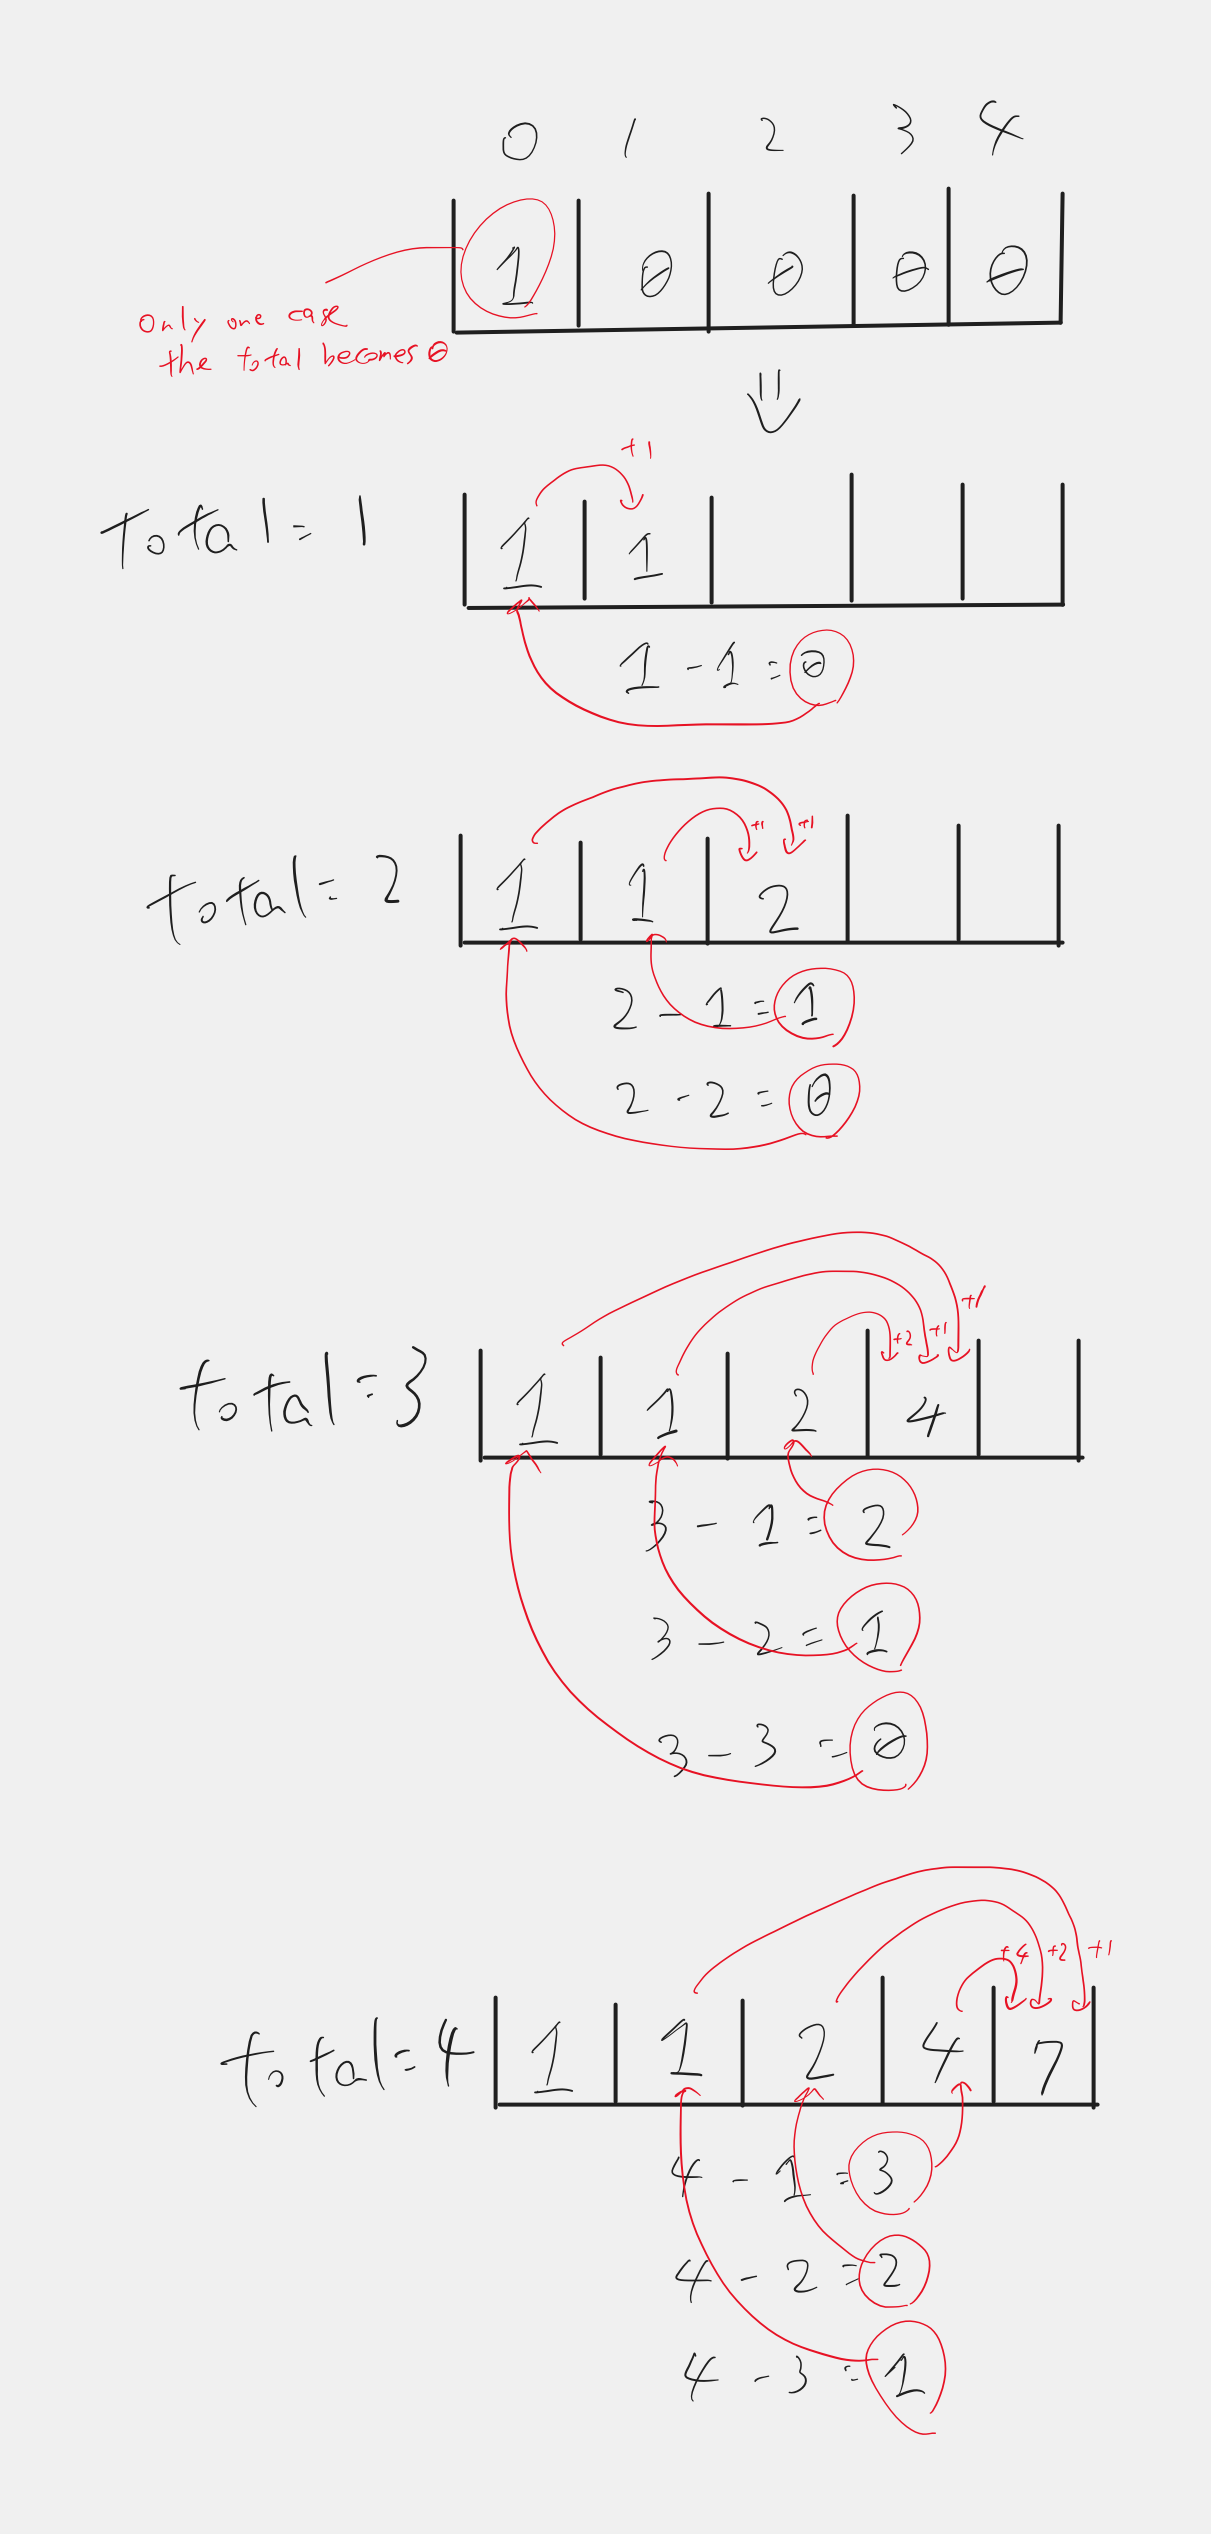 0 1 2 3 4
1 0 0 0 0
Only one case
the total becomes 0
+1
total = 1
1 1
1 - 1 = 0
+1 +1
total = 2
1 1 2
2 - 1 = 1
2 - 2 = 0
+2 +1 +1
total = 3
1 1 2 4
3 - 1 = 2
3 - 2 = 1
3 - 3 = 0
+4 +2 +1
total = 4
1 1 2 4 7
4 - 1 = 3
4 - 2 = 2
4 - 3 = 1